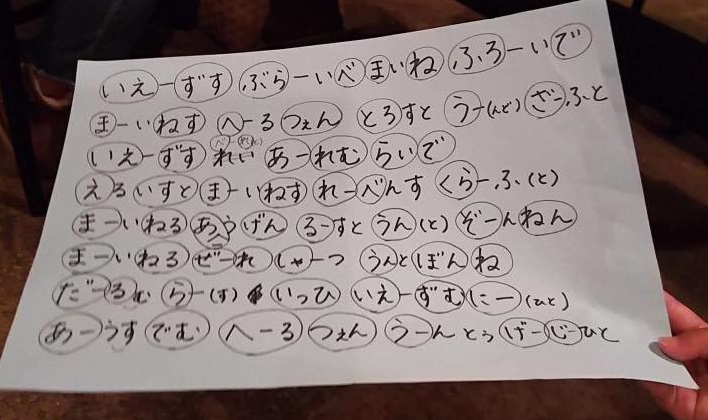 いえーずす ぶらーいべ まいね ふろーいで
まーいねす へーるつぇん とろすと うー(んど) ざーふと
いえーずす れい あーれむ らいで
えるいすと まーいねす れーべんす くらーふ(と)
まーいねる あうげん るーすと うん(と) ぞーんねん
まーいねる ぜーれ しゃーつ うんと ぼんね
だーるむ らー(す) いっひ いえーずむ にー(ひと)
あーうす でむ へーる つぇん うーんとぅ げーじーひと